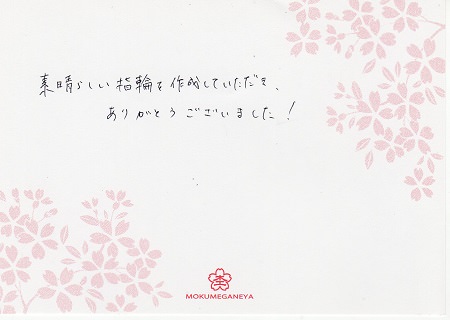 素晴らしい指輪を作成していただき、
ありがとうございました!
杢
MOKUMEGANEYA